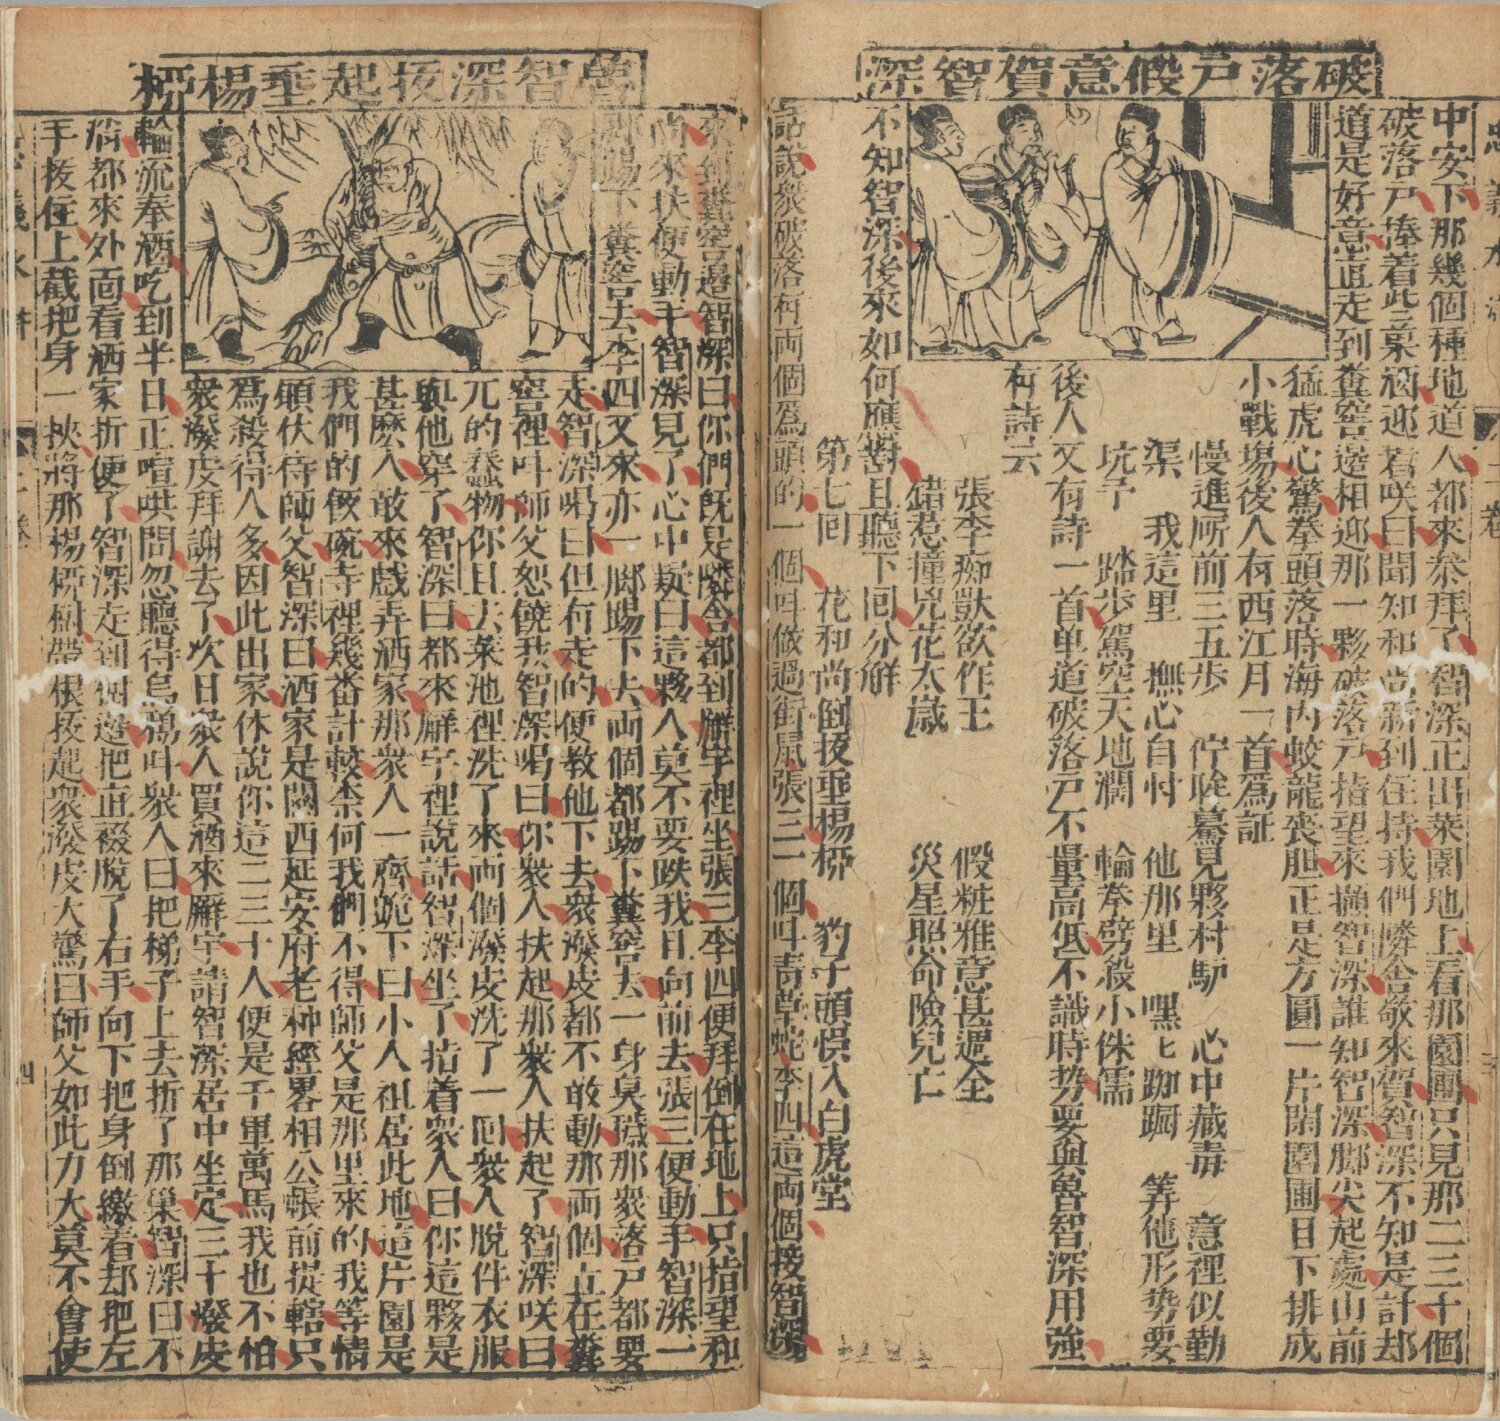 破落戶假意賀智深
中安下那幾個種地道人都來參拜了智深正出菜園地上看那園圃只見那二三十個
破落戶捧着些菓酒迎着咲曰聞知和尚新到住持我們隣舍敬來賀智深不知是計却
道是好意直走到糞窖邊相迎那一夥破落戶指望來攧智深誰知智深脚尖起處山前
猛虎心驚拳頭落時海內蛟龍喪胆正是方圓一片閑園圃目下排成
小戰場後人有西江月一首爲証
慢進所前三五步　佇眸驀見夥村馿　心中藏毒　意裡似勤
渠　我這里　撫心自忖　他那里　嘿匕跏蹰　筭他形势要
坑予　踏步駕空天地濶　輪拳劈殺小侏儒
後人又有詩一首单道破落戶不量高低不識時势要與魯智深用強
有詩云
張李痴獃欲作王　假粧雅意甚週全
錯惹撞兇花太歲　災星照命險兒亡
不知智深後來如何應對且聽下回分解
第七回　花和尚倒拔垂楊柳　豹子頭悞入白虎堂
話說衆破落何兩個爲頭的一個叫做過街鼠張三一個叫青草蛇李四這兩個接智深
魯智深拔起垂楊柳
來到糞窖邊智深曰你們既是隣舍都到廨宇裡坐張三李四便拜倒在地上只指望和
尚來扶便動手智深見了心中疑曰這夥人莫不要跌我且向前去張三便動手智深一
脚踢下糞窖去李四又來亦一脚踢下去兩個都踢下糞窖去一身臭穢那衆落戶都要
走智深喝曰但有走的便教他下去衆潑皮都不敢動那兩個立在糞
窖裡叫師父恕饒我智深喝曰你衆人扶起那衆人扶起了智深咲曰
兀的蠢物你且去菜池裡洗了來兩個潑皮洗了一回衆人脫件衣服
與他穿了智深曰都來廨宇裡說話智深坐了指着衆人曰你這夥是
甚麽人敢來戲弄洒家那衆人一齊跪下曰小人祖居此地這片園是
我們的飯碗寺裡幾番計較奈何我們不得師父是那里來的我等情
願伏侍師父智深曰洒家是關西延安府老种經畧相公帳前提轄只
爲殺得人多因此出家休說你這二三十人便是千軍萬馬我也不怕
衆潑皮拜謝去了次日衆人買酒來廨宇請智深居中坐定三十潑皮
輪流奉酒吃到半日正喧哄間忽聽得烏鴉叫衆人曰把梯子上去折了那巢智深曰不
消都來外面看洒家折便了智深走到樹邊把直裰脫了右手向下把身倒繳着却把左
手拔住上截把身一挾將那楊柳樹帶根拔起衆潑皮大驚曰師父如此力大莫不會使